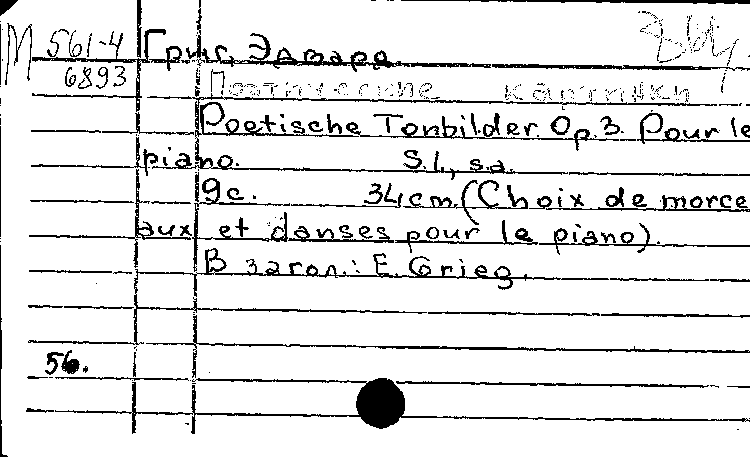 М 561-4
6893
Григ, Эдвард.
Поэтические картинки
Poetische Tonbilder. Op. 3. Pour le
piano. S.l., s.a.
9с. 34cm. (Choix de morce
aux et danses pour le piano).
В загол.: E. Grieg.
56.